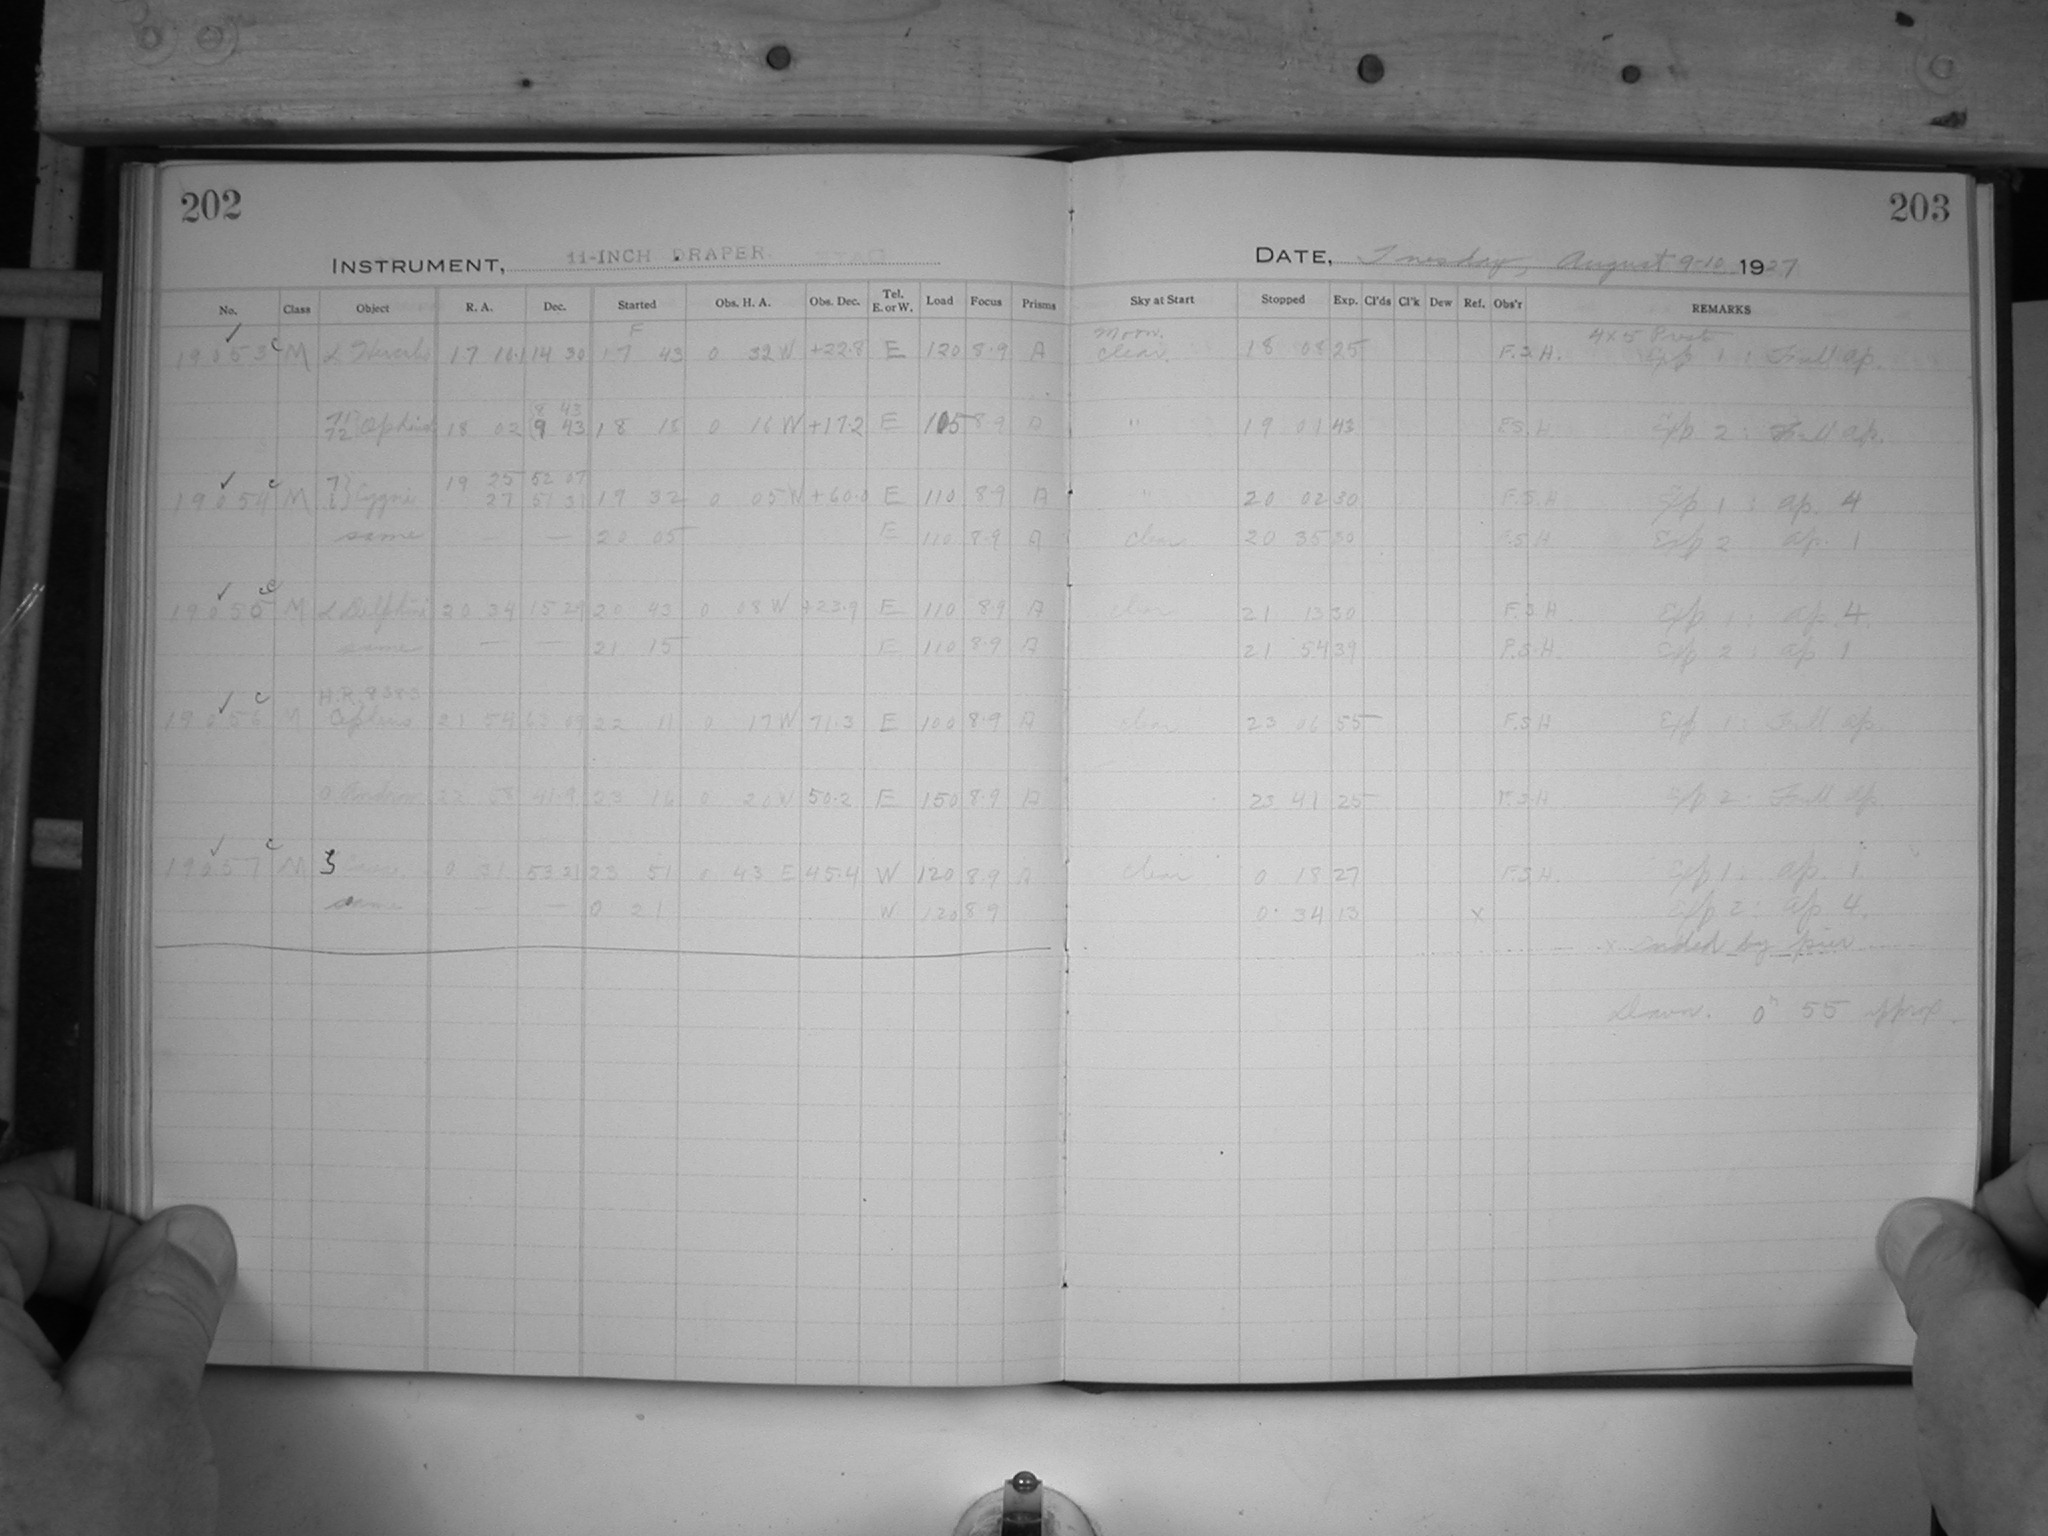 202
203
INSTRUMENT, 11-INCH DRAPER
DATE, Tuesday, August 9-10 1927
No. Class Object R. A. Dec. Started Obs. H. A. Obs. Dec. Tel. E. or W. Load Focus Prisms Sky at Start Stopped Exp. Cl'ds Cl'k Dew Ref. Obs'r REMARKS
F Moon. 4x5
19053 c M α Hercls 17 10.1 14 30 17 43 0 32 W +22.8 E 120 8.9 A clear 18 08 25 F.S.H. Exp 1: Full ap.
9 43
71 72 } Ophiuc 18 02 9 43 18 18 0 16 W +17.2 E 105 8.9 A " 19 01 43 F.S.H Exp 2: Full ap.
7 19 25 52 07
19054 c M Cygni 27 51 31 19 32 0 05 W +60.0 E 110 8.9 A " 20 02 30 F.S.H Exp 1: ap. 4
same — — 20 05 E 110 8.9 A clear 20 35 30 F.S.H Exp 2 ap. 1
19055 c M α Delphini 20 34 15 29 20 43 0 08 W +23.9 E 110 8.9 A clear 21 13 30 F.S.H Exp 1: ap. 4.
same — — 21 15 E 110 8.9 A 21 54 39 F.S.H. Exp 2: ap 1
H.R. 8383
19056 c M Cepheus 21 54 63 09 22 11 0 17 W 71.3 E 100 8.9 A clear 23 06 55 F.S.H Exp 1: Full ap.
o Androm 22 58 41.9 23 16 0 20 W 50.2 E 150 8.9 A 23 41 25 F.S.H Exp 2: Full ap
19057 c M ζ 0 31 53 21 23 51 0 43 E 45.4 W 120 8.9 A clear 0 18 27 F.S.H. Exp 1: ap. 1
same — — 0 21 W 120 8.9 0 34 13 x Exp 2: ap 4.
x ended by pier
Dawn. 0h 55 approx.